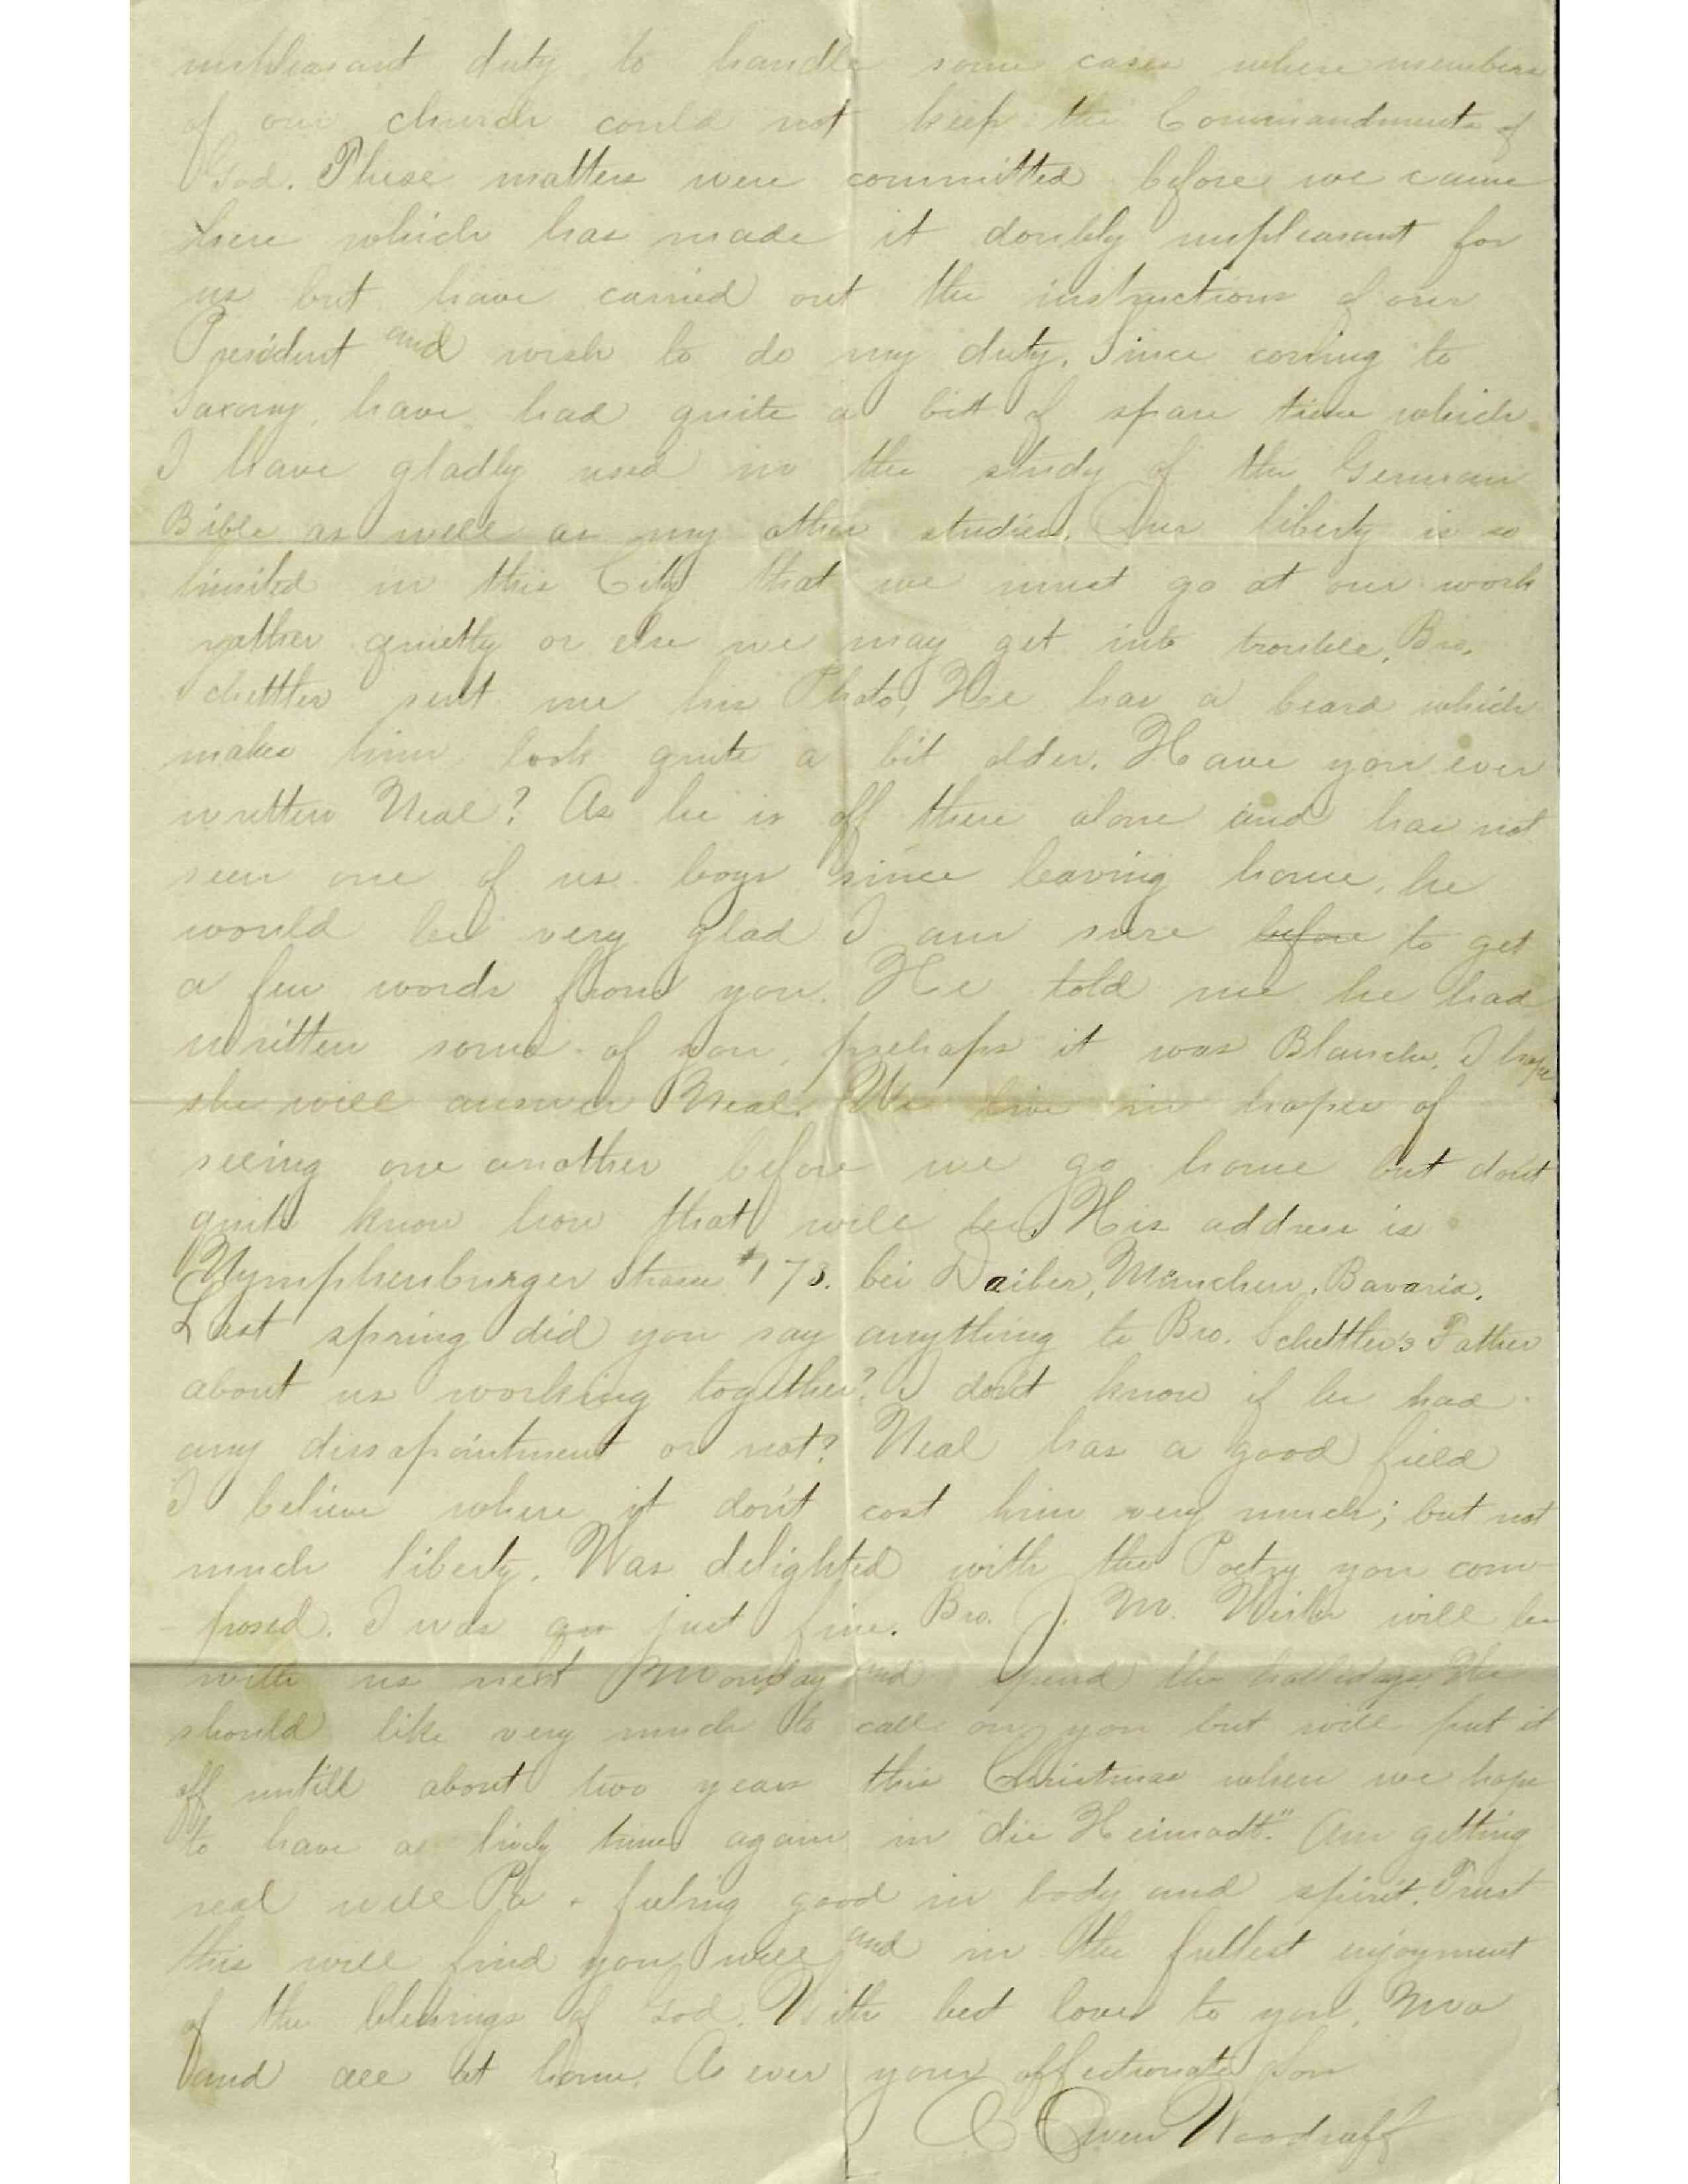 unpleasant duty to handle some cases where members
of our church could not keep the Commandments of
God. These matters were committed before we came
here which has made it doubly unpleasant for
us but have carried out the instructions of our
President and wish to do my duty. Since coming to
Saxony, have had quite a bit of spare time which
I have gladly used in the study of the German
Bible as well as my other studies. Our liberty is so
limited in this City that we must go at our work
rather quietly or else we may get into trouble. Bro.
Schettler sent me his Photo, He has a beard which
makes him look quite a bit older. Have you ever
written Neal? As he is off there alone and has not
seen one of us boys since leaving home, he
would be very glad I am sure before to get
a few words from you. He told me he had
written some of you, prehaps it was Blanche. I hope
she will answer Neal. We live in hopes of
seeing one another before we go home but don't
quite know how that will be. His address is
Nymphenburger Strasse #173. bei Daiber, München, Bavaria.
Last spring did you say anything to Bro. Schettler's Father
about us working together? I don't know if he had
any dissapointment or not? Neal has a good field
I believe where it don't cost him very much; but not
much liberty. Was delighted with the Poetry you com-
-posed. I was just fine. Bro. J. M. will be
with us next Monday and spend the hollidays. We
should like very much to call on you but will put it
off untill about two years this Christmas when we hope
to have a lively time again in "die Heimadt." Am getting
real well Pa + feeling good in body and spirit. Trust
this will find you well and in the fullest enjoyment
of the blessings of God. With best love to you, Ma
and all at home. As ever your affectionate Son
Owen Woodruff